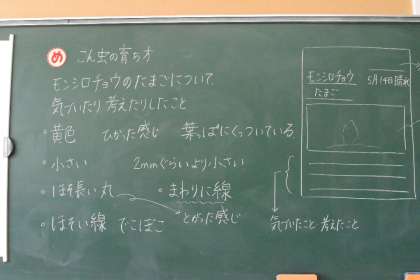 め こん虫の育ち方
モンシロチョウのたまごについて、
気づいたり考えたりしたこと
・黄色 ひかった感じ 葉っぱにくっついている
・小さい 2mmぐらいより小さい
・ほそ長い丸 ・まわりに線
・ほそい線 でこぼこ とがった感じ
モンシロチョウ 5月14日 晴れ
たまご
気づいたこと 考えたこと